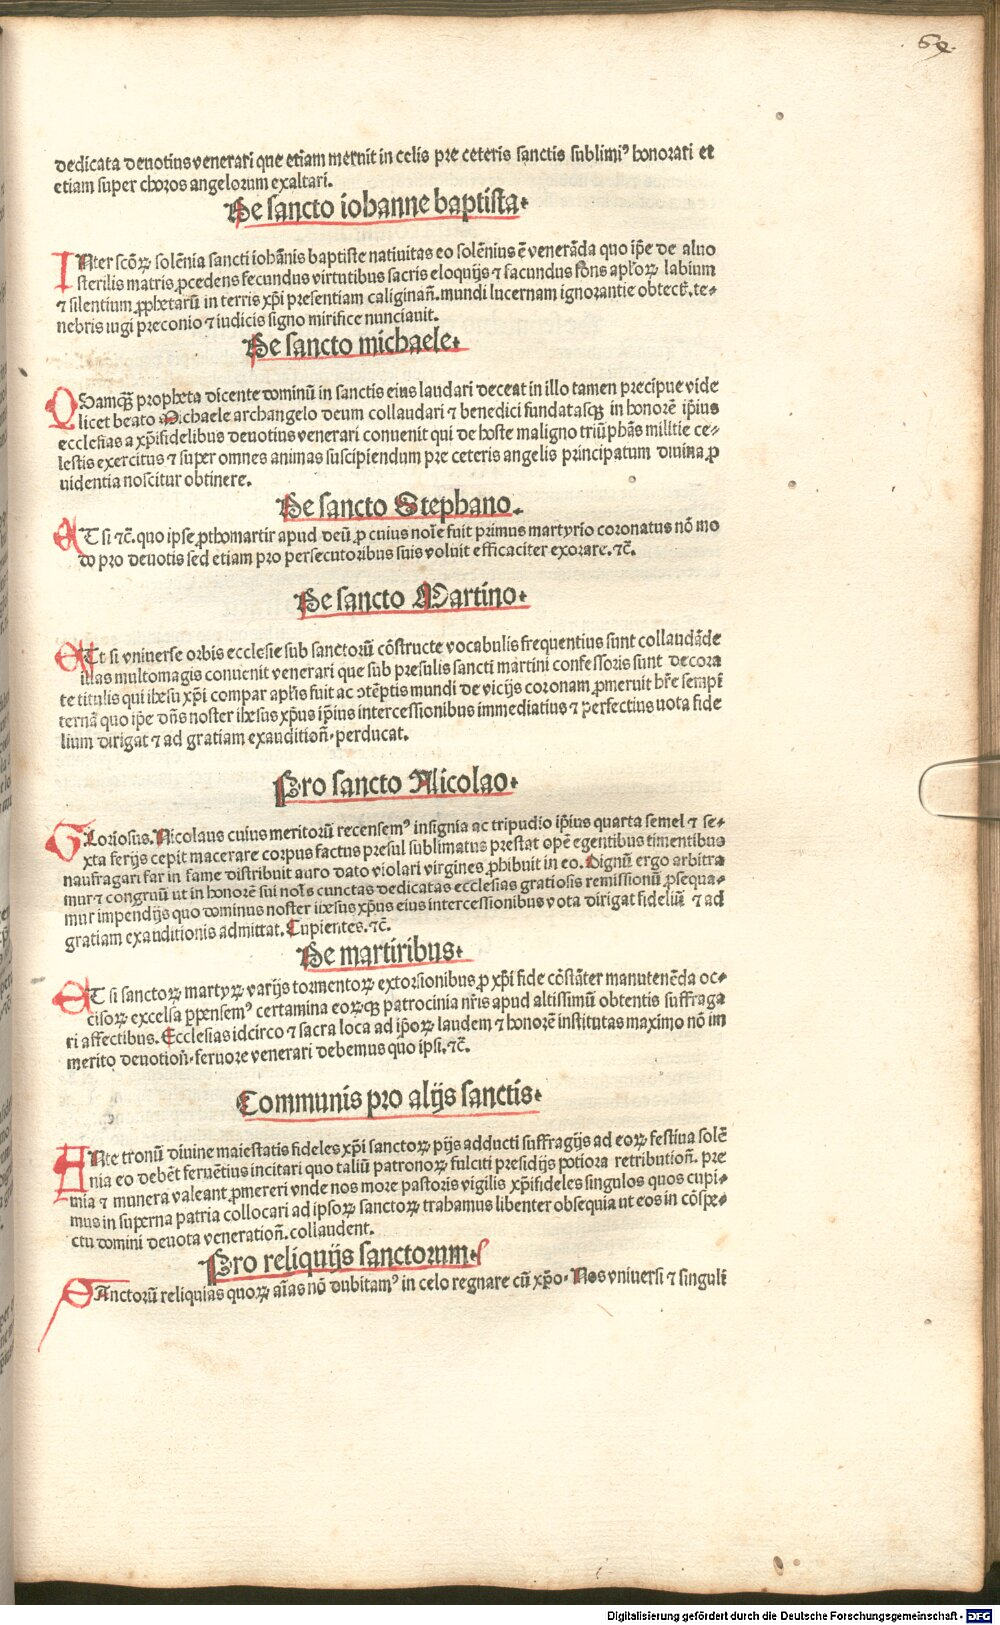 69.
dedicata deuotius venerari que etiam meruit in celis pre ceteris sanctis sublimiꝰ honorari et
etiam super choros angelorum exaltari.
De sancto iohanne baptista.
INter scōꝝ solēnia sancti iohānis baptiste natiuitas eo solēnius ē venerāda quo ip̄e de aluo
sterilis matris ꝓcedens fecundus virtutibus sacris eloquijs ⁊ facundus fons apl̓oꝝ labium
⁊ silentium ꝓphetarū in terris xp̄i presentiam caliginan̄. mundi lucernam ignorantie obtect̄. te⸗
nebris iugi preconio ⁊ iudicis signo mirifice nunciauit.
De sancto michaele.
QUamqꝫ propheta dicente dominū in sanctis eius laudari deceat in illo tamen precipue vide
licet beato Michaele archangelo deum collaudari ⁊ benedici fundatasqꝫ in honorē ip̄ius
ecclesias a xp̄ifidelibus deuotius venerari conuenit qui de hoste maligno triūphās militie ce⸗
lestis exercitus ⁊ super omnes animas suscipiendum pre ceteris angelis principatum diuina ꝓ
uidentia noscitur obtinere.
De sancto Stephano.
ET si ⁊c̄. quo ipse ꝓthomartir apud deū ꝓ cuius noīe fuit primus martyrio coronatus nō mo
do pro deuotis sed etiam pro persecutoribus suis voluit efficaciter exorare. ⁊c̄.
De sancto Martino.
ET si vniuerse orbis ecclesie sub sanctorū cōstructe vocabulis frequentius sunt collaudāde
illas multomagis conuenit venerari que sub presulis sancti martini confessoris sunt decora
te titulis qui ihesu xp̄i compar apl̓is fuit ac ꝯtēptis mundi de vicijs coronam ꝓmeruit hr̄e sempi
ternā quo ip̄e dn̄s noster ihesus xp̄us ip̄ius intercessionibus immediatius ⁊ perfectius uota fide
lium dirigat ⁊ ad gratiam exaudition̄. perducat.
Pro sancto Nicolao.
GLoriosus. Nicolaus cuius meritorū recensemꝰ insignia ac tripudio ip̄ius quarta semel ⁊ se⸗
xta ferijs cepit macerare corpus factus presul sublimatus prestat opē egentibus timentibus
naufragari far in fame distribuit auro dato violari virgines ꝓhibuit in eo. Dignū ergo arbitra
mur ⁊ congruū ut in honorē sui nois cunctas dedicatas ecclesias gratiosis remissionū ꝓsequa⸗
mur impendijs quo dominus noster ihesus xp̄us eius intercessionibus vota dirigat fideliū ⁊ ad
gratiam exauditionis admittat. Cupientes. ⁊c̄.
De martiribus.
ET si sanctoꝝ martyꝝ varijs tormentoꝝ extorsionibus ꝓ xp̄i fide cōstāter manutenēda oc⸗
cisoꝝ excelsa ꝑpensemꝰ certamina eoꝝqꝫ patrocinia nr̄is apud altissimū obtentis suffraga
ri affectibus. Ecclesias idcirco ⁊ sacra loca ad ip̄oꝝ laudem ⁊ honorē institutas maximo nō im
merito deuotion̄. feruore venerari debemus quo ipsi. ⁊c̄.
Communis pro alijs sanctis.
ANte tronū diuine maiestatis fideles xp̄i sanctoꝝ pijs adducti suffragijs ad eoꝝ festiua solē
nia eo debēt feruētius incitari quo taliū patronoꝝ fulciti presidijs potiora retribution̄. pre
mia ⁊ munera valeant ꝓmereri vnde nos more pastoris vigilis xp̄ifideles singulos quos cupi⸗
mus in superna patria collocari ad ipsoꝝ sanctoꝝ trahamus libenter obsequia ut eos in cōspe⸗
ctu domini deuota veneration̄. collaudent.
Pro reliquijs sanctorum.
SAnctorū reliquias quoꝝ aīas nō dubitamꝰ in celo regnare cū xp̄o. Nos vniuersi ⁊ singuli
Digitalisierung gefördert durch die Deutsche Forschungsgemeinschaft - DFG